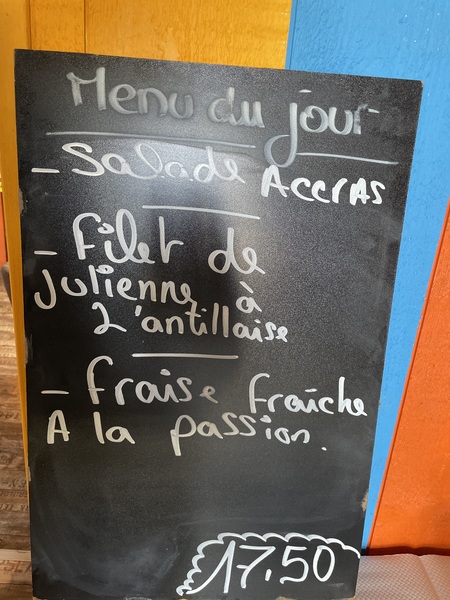 Menu du jour
- Salade Accras
- Filet de
Julienne à
L'antillaise
- fraise fraîche
A la passion.
17.50